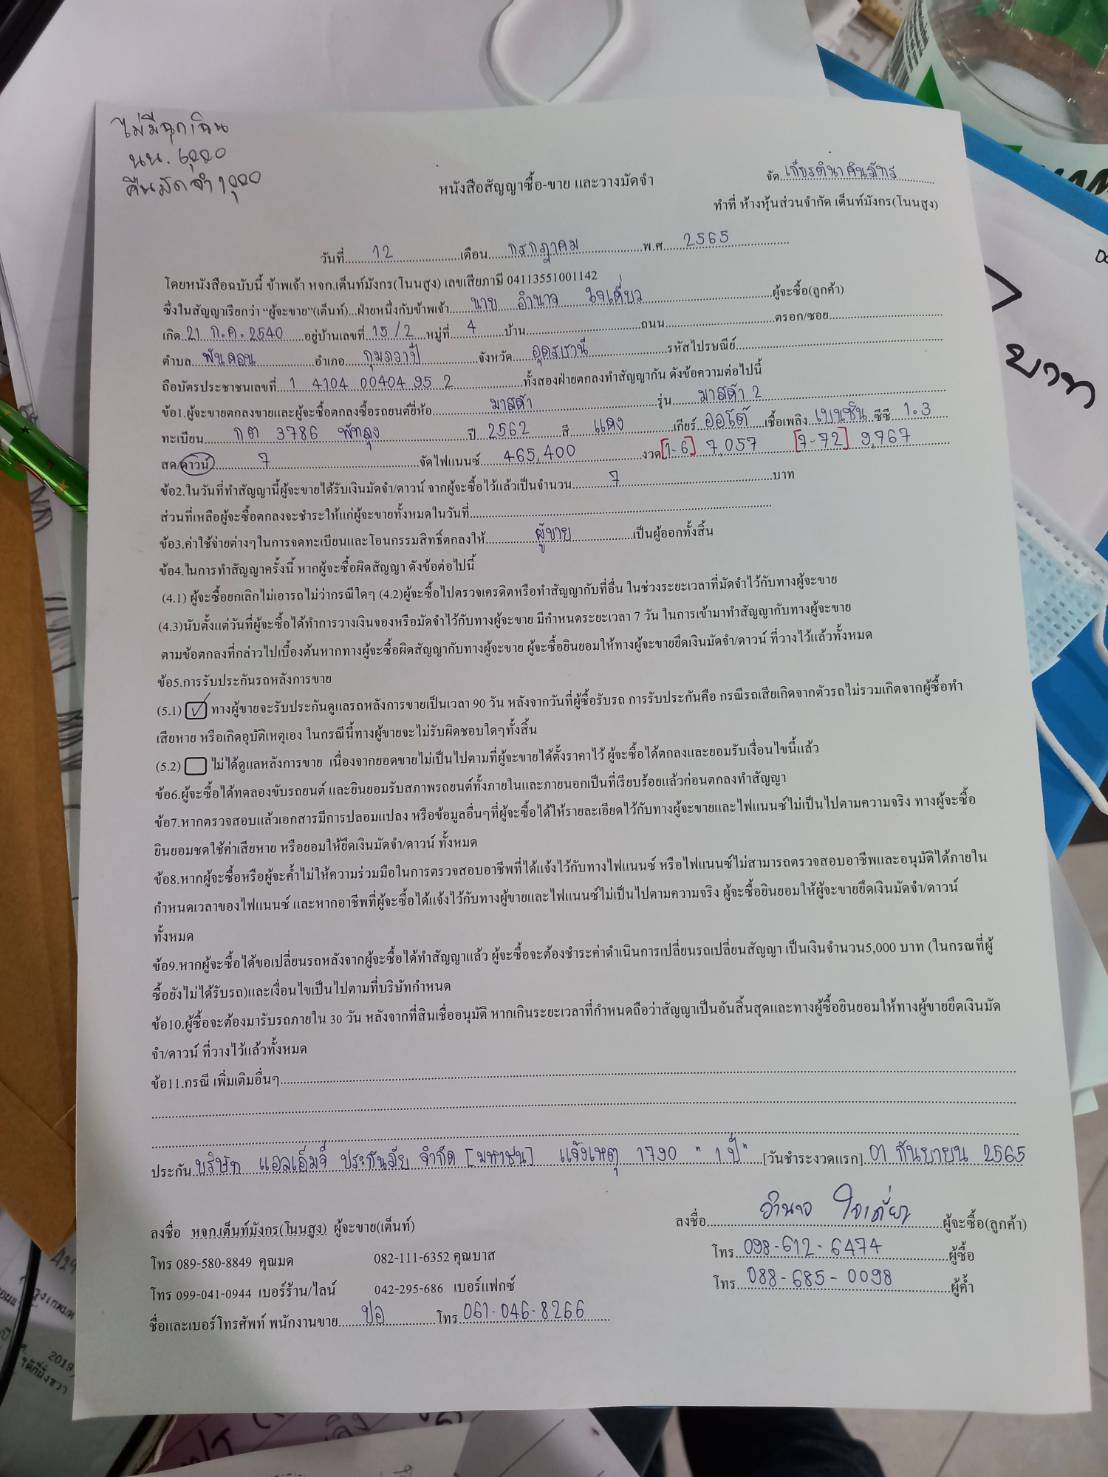 ไม่มีฉุกเฉิน
นน. 6,000
คืนมัดจำ 1,000
หนังสือสัญญาซื้อ-ขาย และวางมัดจำ
จัด เกียรตินาคินภัทร
ทำที่ ห้างหุ้นส่วนจำกัด เต็นท์มังกร(โนนสูง)
วันที่ 12 เดือน กรกฎาคม พ.ศ. 2565
โดยหนังสือฉบับนี้ ข้าพเจ้า หจก.เต็นท์มังกร(โนนสูง) เลขเสียภาษี 04113551001142
ซึ่งในสัญญาเรียกว่า "ผู้จะขาย"(เต็นท์) ฝ่ายหนึ่งกับข้าพเจ้า นาย อำนาจ ใจเดียว ผู้จะซื้อ(ลูกค้า)
เกิด 21 ก.ค. 2540 อยู่บ้านเลขที่ 15/2 หมู่ที่ 4 บ้าน ถนน ตรอก/ซอย
ตำบล พันดอน อำเภอ กุมภวาปี จังหวัด อุดรธานี รหัสไปรษณีย์
ถือบัตรประชาชนเลขที่ 1 4104 00404 95 2 ทั้งสองฝ่ายตกลงทำสัญญากัน ดังข้อความต่อไปนี้
ข้อ1.ผู้จะขายตกลงขายและผู้จะซื้อตกลงซื้อรถยนต์ยี่ห้อ มาสด้า รุ่น มาสด้า 2
ทะเบียน กต 3786 พัทลุง ปี 2562 สี แดง เกียร์ ออโต้ เชื้อเพลิง เบนซิน ซีซี 1.3
สด/ดาวน์ 7 จัดไฟแนนซ์ 465,400 งวด [1-6] 7,057 [7-72] 9,767
ข้อ2.ในวันที่ทำสัญญานี้ผู้จะขายได้รับเงินมัดจำ/ดาวน์ จากผู้จะซื้อไว้แล้วเป็นจำนวน 7 บาท
ส่วนที่เหลือผู้จะซื้อตกลงจะชำระให้แก่ผู้จะขายทั้งหมดในวันที่
ข้อ3.ค่าใช้จ่ายต่างๆในการจดทะเบียนและโอนกรรมสิทธิ์ตกลงให้ ผู้ขาย เป็นผู้ออกทั้งสิ้น
ข้อ4.ในการทำสัญญาครั้งนี้ หากผู้จะซื้อผิดสัญญา ดังข้อต่อไปนี้
(4.1) ผู้จะซื้อยกเลิกไม่เอารถไม่ว่ากรณีใดๆ (4.2)ผู้จะซื้อไปตรวจเครดิตหรือทำสัญญากับที่อื่น ในช่วงระยะเวลาที่มัดจำไว้กับทางผู้จะขาย
(4.3)นับตั้งแต่วันที่ผู้จะซื้อได้ทำการวางเงินจองหรือมัดจำไว้กับทางผู้จะขาย มีกำหนดระยะเวลา 7 วัน ในการเข้ามาทำสัญญากับทางผู้จะขาย
ตามข้อตกลงที่กล่าวไปเบื้องต้นหากทางผู้จะซื้อผิดสัญญากับทางผู้จะขาย ผู้จะซื้อยินยอมให้ทางผู้จะขายยึดเงินมัดจำ/ดาวน์ ที่วางไว้แล้วทั้งหมด
ข้อ5.การรับประกันรถหลังการขาย
(5.1) ทางผู้ขายจะรับประกันดูแลรถหลังการขายเป็นเวลา 90 วัน หลังจากวันที่ผู้ซื้อรับรถ การรับประกันคือ กรณีรถเสียเกิดจากตัวรถไม่รวมเกิดจากผู้ซื้อทำ
เสียหาย หรือเกิดอุบัติเหตุเอง ในกรณีนี้ทางผู้ขายจะไม่รับผิดชอบใดๆทั้งสิ้น
(5.2) ไม่ได้ดูแลหลังการขาย เนื่องจากยอดขายไม่เป็นไปตามที่ผู้จะขายได้ตั้งราคาไว้ ผู้จะซื้อได้ตกลงและยอมรับเงื่อนไขนี้แล้ว
ข้อ6.ผู้จะซื้อได้ทดลองขับรถยนต์ และยินยอมรับสภาพรถยนต์ทั้งภายในและภายนอกเป็นที่เรียบร้อยแล้วก่อนตกลงทำสัญญา
ข้อ7.หากตรวจสอบแล้วเอกสารมีการปลอมแปลง หรือข้อมูลอื่นๆที่ผู้จะซื้อได้ให้รายละเอียดไว้กับทางผู้จะขายและไฟแนนซ์ไม่เป็นไปตามความจริง ทางผู้จะซื้อ
ยินยอมชดใช้ค่าเสียหาย หรือยอมให้ยึดเงินมัดจำ/ดาวน์ ทั้งหมด
ข้อ8.หากผู้จะซื้อหรือผู้จะค้ำไม่ให้ความร่วมมือในการตรวจสอบอาชีพที่ได้แจ้งไว้กับทางไฟแนนซ์ หรือไฟแนนซ์ไม่สามารถตรวจสอบอาชีพและอนุมัติได้ภายใน
กำหนดเวลาของไฟแนนซ์ และหากอาชีพที่ผู้จะซื้อได้แจ้งไว้กับทางผู้ขายและไฟแนนซ์ไม่เป็นไปตามความจริง ผู้จะซื้อยินยอมให้ผู้จะขายยึดเงินมัดจำ/ดาวน์
ทั้งหมด
ข้อ9.หากผู้จะซื้อได้ขอเปลี่ยนรถหลังจากผู้จะซื้อได้ทำสัญญาแล้ว ผู้จะซื้อจะต้องชำระค่าดำเนินการเปลี่ยนรถเปลี่ยนสัญญา เป็นเงินจำนวน5,000 บาท (ในกรณที่ผู้
ซื้อยังไม่ได้รับรถ)และเงื่อนไขเป็นไปตามที่บริษัทกำหนด
ข้อ10.ผู้ซื้อจะต้องมารับรถภายใน 30 วัน หลังจากที่สินเชื่ออนุมัติ หากเกินระยะเวลาที่กำหนดถือว่าสัญญาเป็นอันสิ้นสุดและทางผู้ซื้อยินยอมให้ทางผู้ขายยึดเงินมัด
จำ/ดาวน์ ที่วางไว้แล้วทั้งหมด
ข้อ11.กรณี เพิ่มเติมอื่นๆ
ประกัน บริษัท แอลเอ็มจี ประกันภัย จำกัด [มหาชน] แจ้งเหตุ 1790 "1 ปี" [วันชำระงวดแรก] 01 กันยายน 2565
ลงชื่อ หจก.เต็นท์มังกร(โนนสูง) ผู้จะขาย(เต็นท์)
ลงชื่อ อำนาจ ใจเดียว ผู้จะซื้อ(ลูกค้า)
โทร 089-580-8849 คุณมด 082-111-6352 คุณบาส
โทร 098-612-6474 ผู้ซื้อ
โทร 099-041-0944 เบอร์ร้าน/ไลน์ 042-295-686 เบอร์แฟกซ์
โทร 088-685-0098 ผู้ค้ำ
ชื่อและเบอร์โทรศัพท์ พนักงานขาย ปอ โทร 061-046-8266
บาท
2019